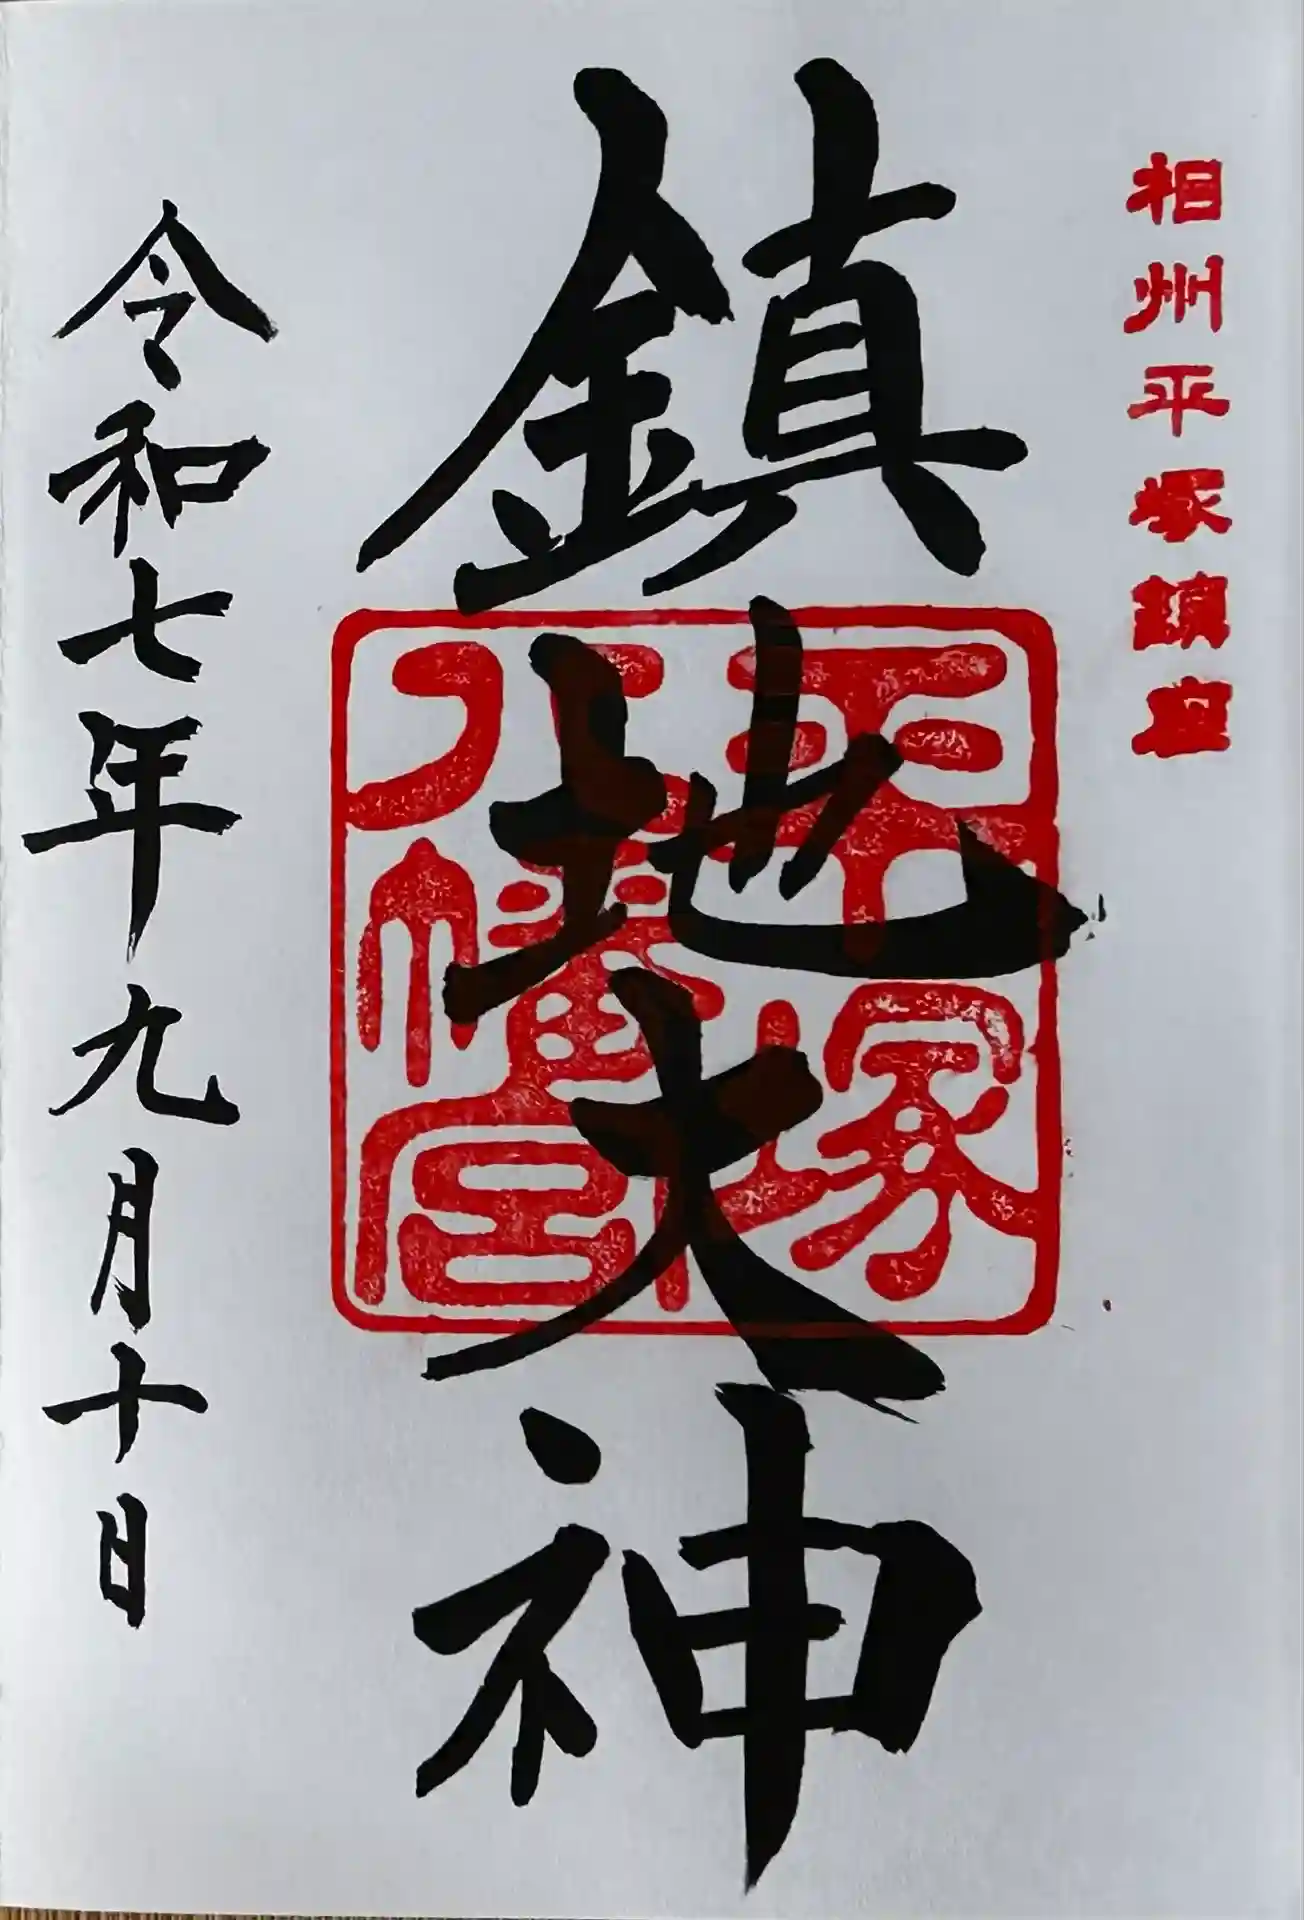 相州平塚鎮座
鎮地大神
平塚
八幡宮
令和七年九月十日